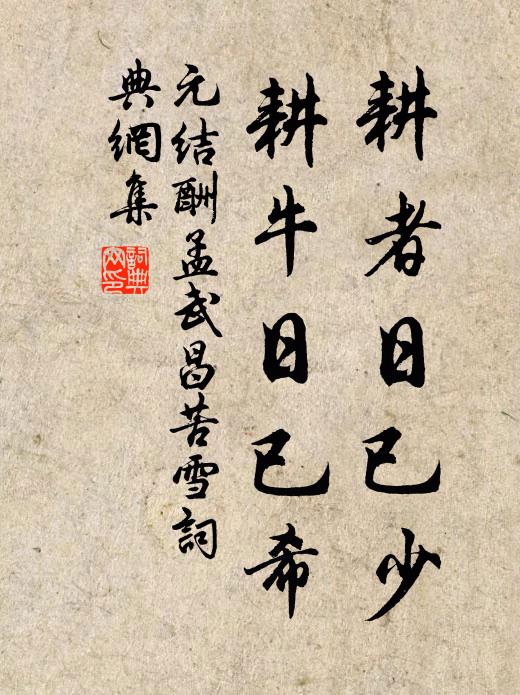 耕者日已少
耕牛日已希
元结酬孟武昌苦雪詞
典網集
詞典網印